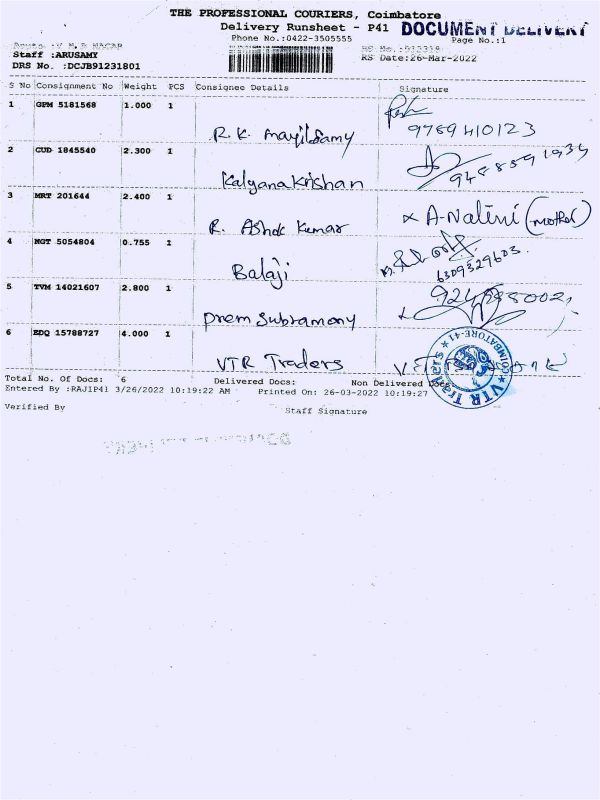 THE PROFESSIONAL COURIERS, Coimbatore
Delivery Runsheet - P41 DOCUMENT DELIVERY
Phone No.:0422-3505555 Page No.:1
Staff :ARUSAMY RS Date:26-Mar-2022
DRS No. :DCJB91231801
S No Consignment No Weight PCS Consignee Details Signature
1 GPM 5181568 1.000 1
R.K. Mayilsamy 9789410123
2 CUD 1845540 2.300 1
Kalyana Krishan
3 MRT 201644 2.400 1
R. Ashok Kumar x A-Nalini (mother)
4 MGT 5054804 0.755 1
Balaji 6309329603
5 TVM 14021607 2.800 1
Prem Subramony
6 EDQ 15788727 4.000 1
VTR Traders
COIMBATORE-41 ★ VTR Traders ★
Total No. Of Docs: 6 Delivered Docs: Non Delivered Docs
Entered By :RAJIP41 3/26/2022 10:19:22 AM Printed On: 26-03-2022 10:19:27
Verified By Staff Signature